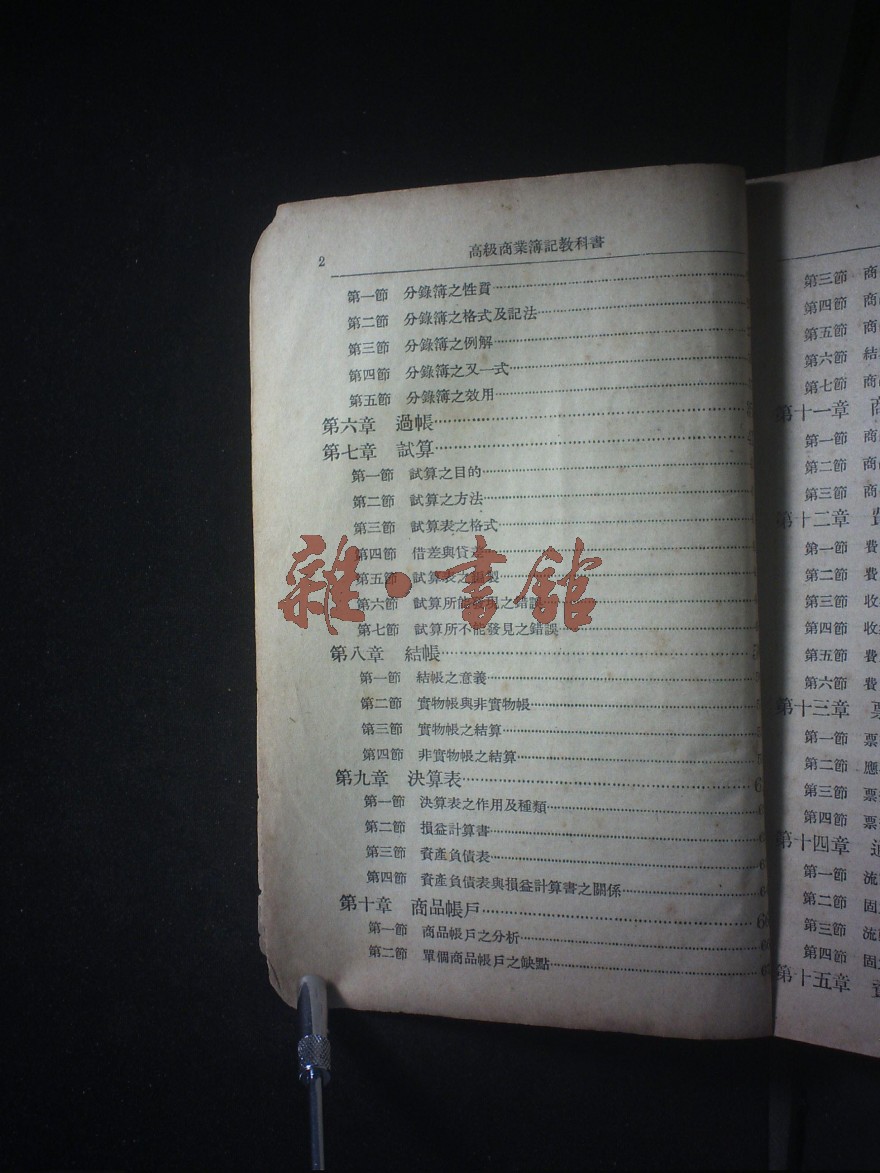 2
高級商業簿記教科書
第一節 分錄簿之性質
第二節 分錄簿之格式及記法
第三節 分錄簿之例解
第四節 分錄簿之又一式
第五節 分錄簿之效用
第六章 過帳
第七章 試算
第一節 試算之目的
第二節 試算之方法
第三節 試算表之格式
第四節 借差與貸差
第五節 試算表之
第六節 試算所能發現之錯誤
第七節 試算所不能發見之錯誤
第八章 結帳
第一節 結帳之意義
第二節 實物帳與非實物帳
第三節 實物帳之結算
第四節 非實物帳之結算
第九章 決算表
第一節 決算表之作用及種類
第二節 損益計算書
第三節 資產負債表
第四節 資產負債表與損益計算書之關係
第十章 商品帳戶
第一節 商品帳戶之分析
第二節 單個商品帳戶之缺點
雜·書館
第三節 商
第四節 商
第五節 商
第六節 結
第七節 商
第十一章 商
第一節 商
第二節 商
第三節 商
第十二章 費
第一節 費
第二節 費
第三節 收
第四節 收
第五節 費
第六節 費
第十三章 票
第一節 票
第二節 應
第三節 票
第四節 票
第十四章
第一節 流
第二節 固
第三節 流
第四節 固
第十五章